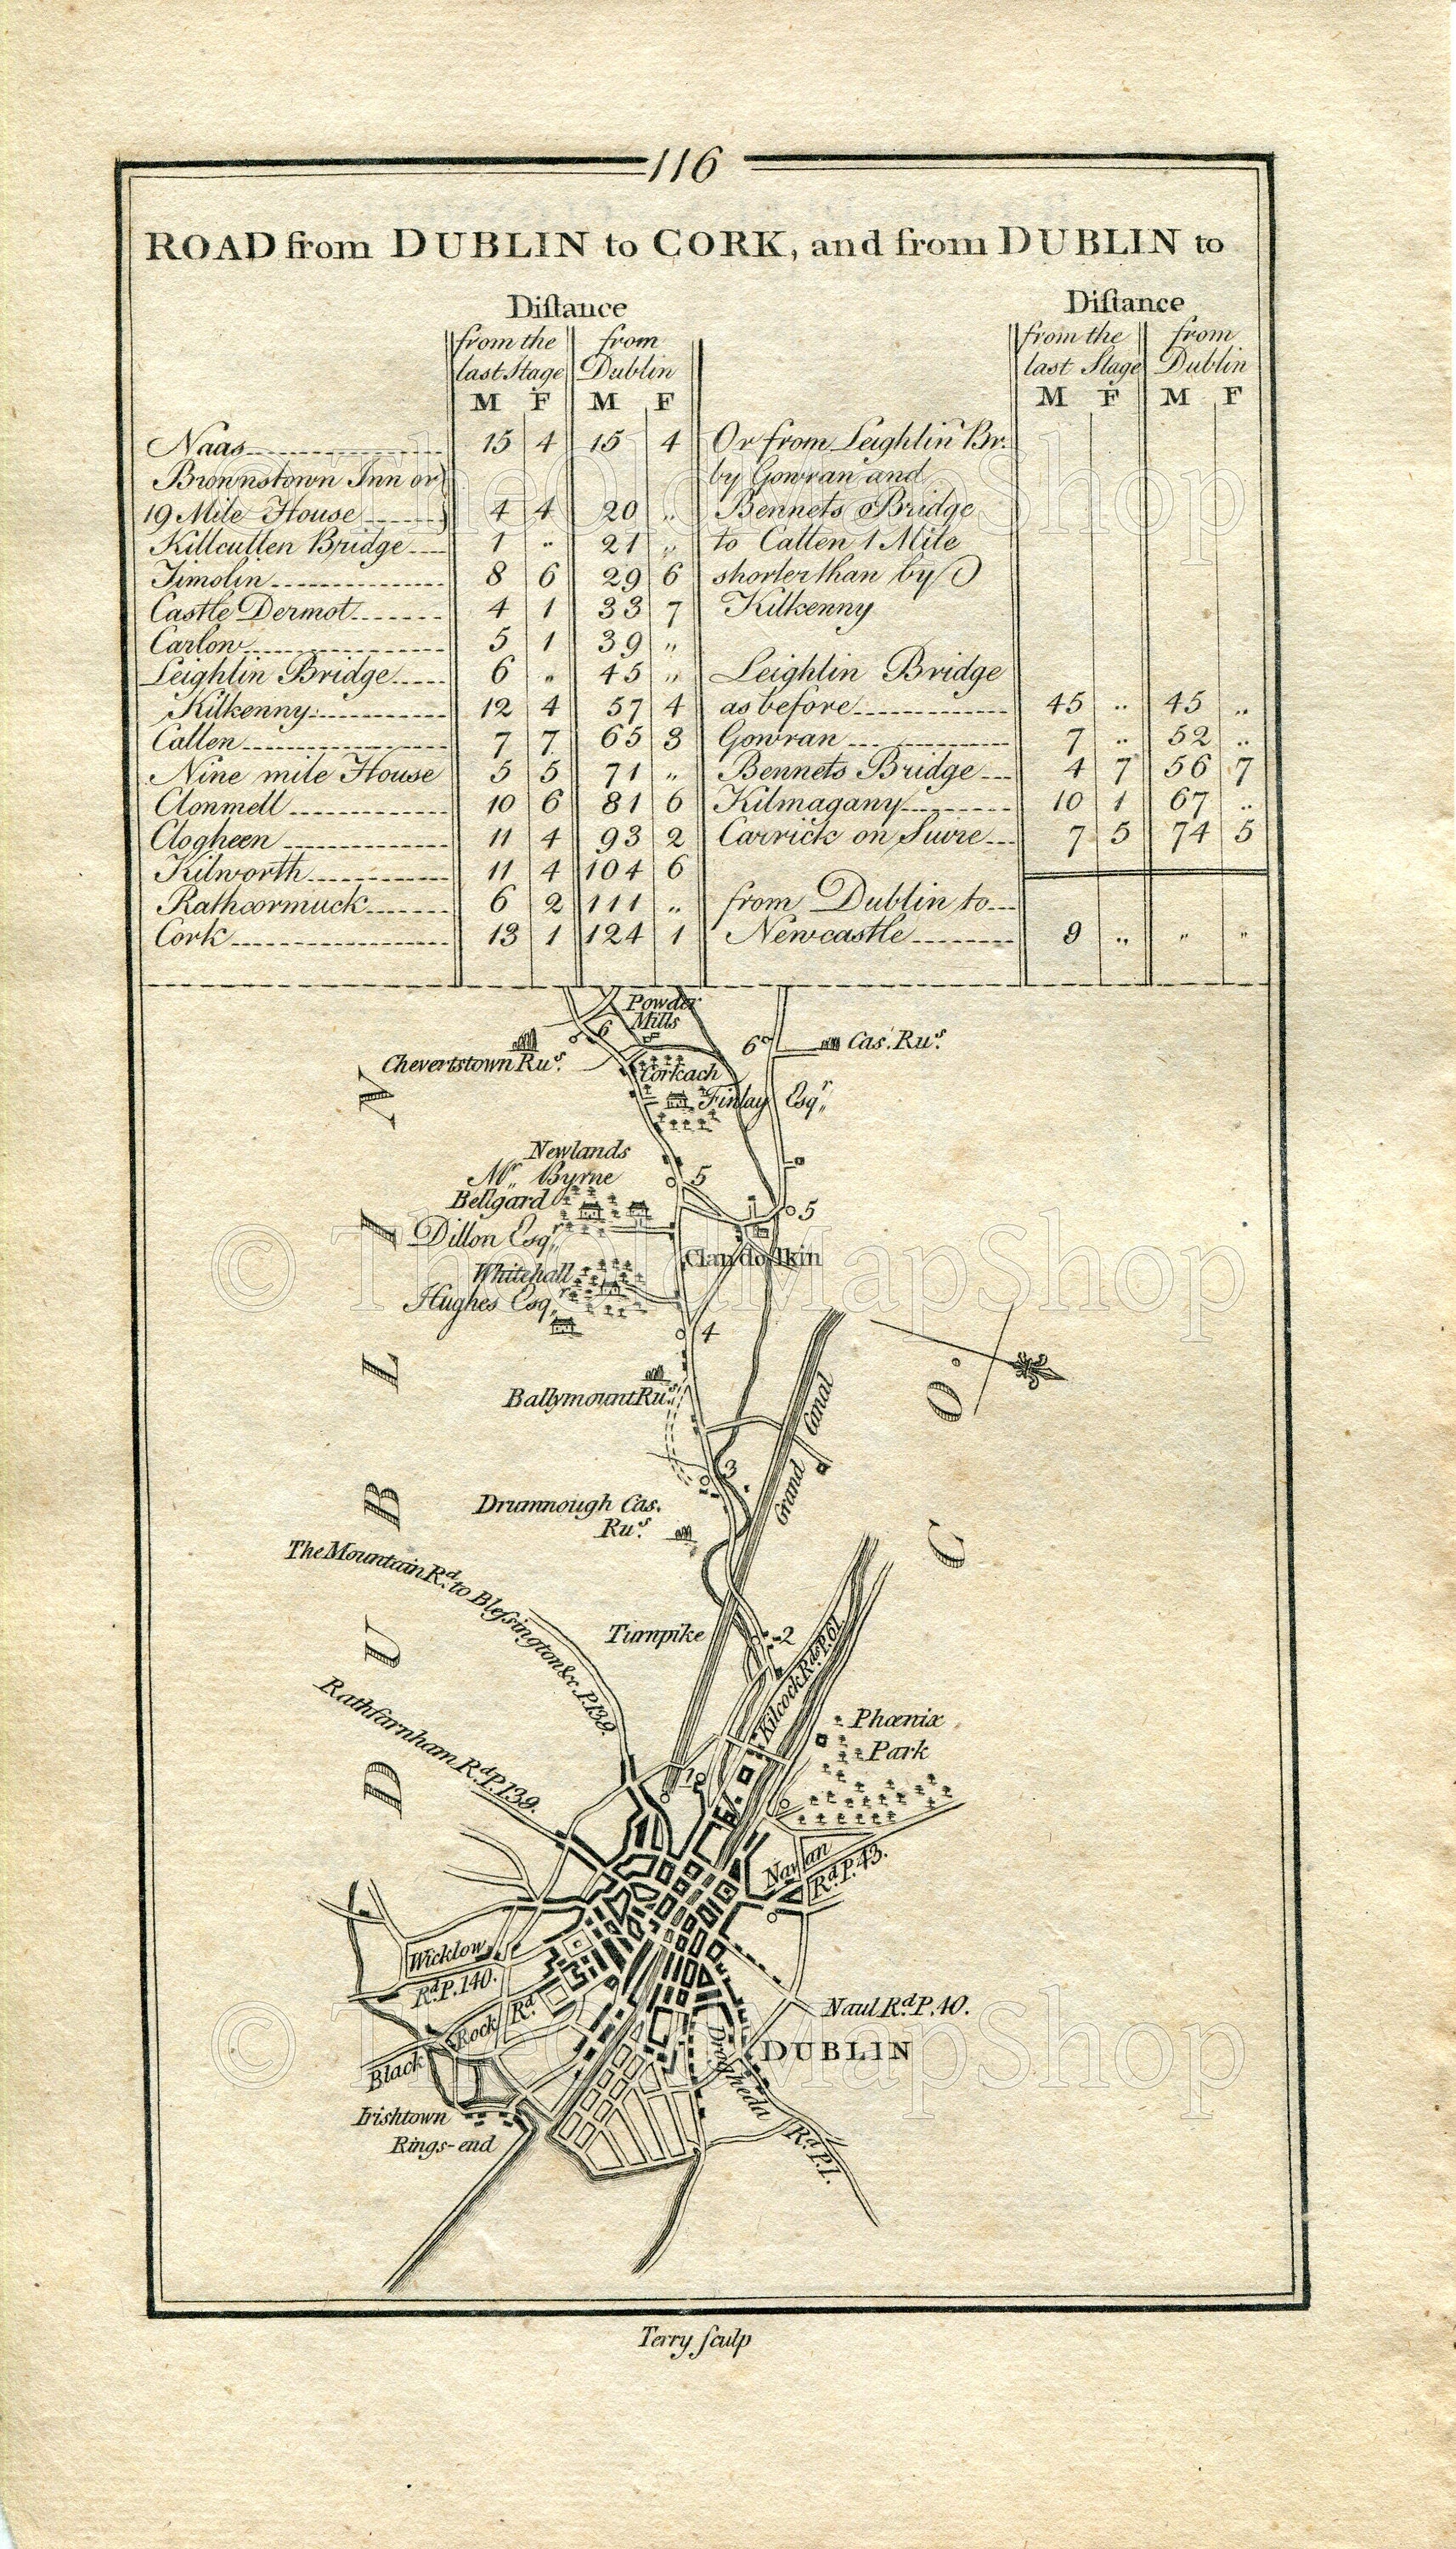 116
ROAD from DUBLIN to CORK, and from DUBLIN to
Distance
from the last Stage from Dublin
M F M F
Naas 15 4 15 4
Brownstown Inn or
19 Mile House 4 4 20 ..
Killcullen Bridge 1 .. 21 ..
Timolin 8 6 29 6
Castle Dermot 4 1 33 7
Carlow 5 1 39 ..
Leighlin Bridge 6 .. 45 ..
Kilkenny 12 4 57 4
Callen 7 7 65 3
Nine mile House 5 5 71 ..
Clonmell 10 6 81 6
Clogheen 11 4 93 2
Kilworth 11 4 104 6
Rathcormuck 6 2 111 ..
Cork 13 1 124 1
Distance
from the last Stage from Dublin
M F M F
Or from Leighlin Br.
by Gowran and
Bennets Bridge
to Callen 1 Mile
shorter than by
Kilkenny
Leighlin Bridge
as before 45 .. 45 ..
Gowran 7 .. 52 ..
Bennets Bridge 4 7 56 7
Kilmagany 10 1 67 ..
Carrick on Suire 7 5 74 5
from Dublin to
Newcastle 9 .. .. ..
Powder
Mills
6
6
Cas. Rus.
Chevertstown Rus.
Corkach
Finlay Esqr.
Newlands
Mr. Byrne
5
Bellgard
5
Dillon Esqr.
Clandolkin
Whitehall
Hughes Esqr.
4
Ballymount Rus.
Grand Canal
3
Drumnough Cas.
Rus.
The Mountain Rd. to Blessington &c P.139.
Turnpike
2
Kilcock Rd. P.61.
Rathfarnham Rd. P.139.
Phœnix
Park
1
Navan
Rd. P.43.
Wicklow
Rd. P.140.
Black Rock Rd.
Naul Rd. P.40.
DUBLIN
Drogheda Rd. P.1.
Irishtown
Rings-end
CO. DUBLIN
Terry sculp
© TheOldMapShop
© TheOldMapShop
© TheOldMapShop